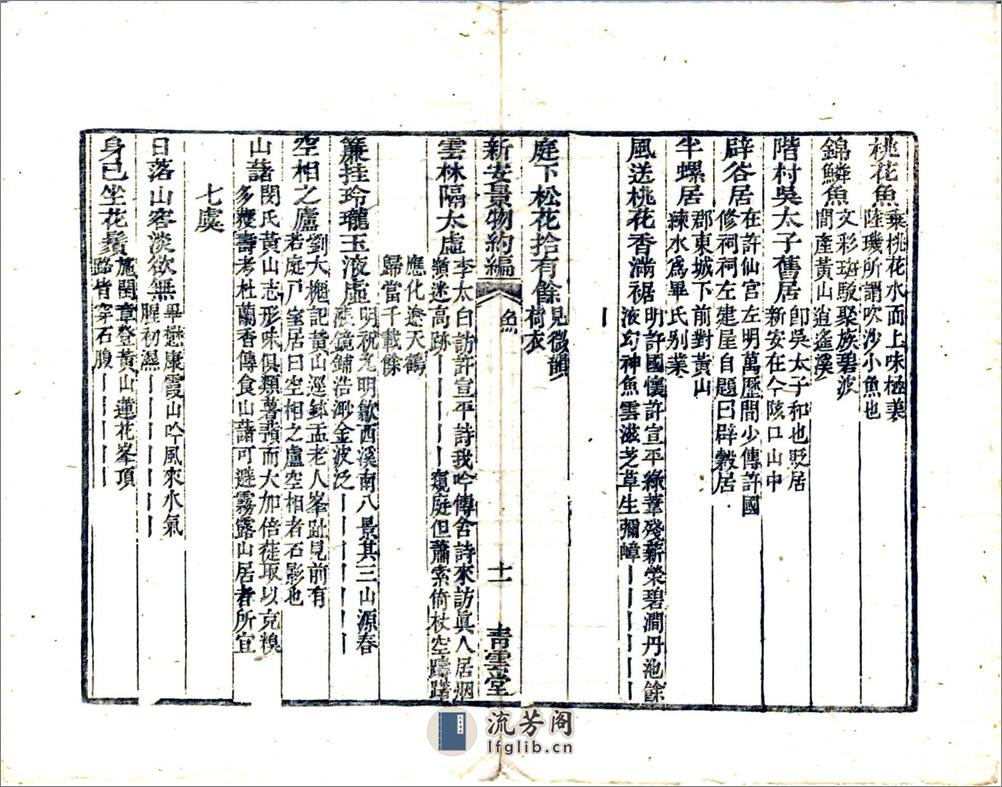 桃花魚乘桃花水面上味極美
陸璣所謂吹沙小魚也
錦鱗魚文彩斑駁聚族碧波
間產黃山逍遙溪
階村吳太子舊居卽吳太子和也貶居
新安在今陔口山中
辟谷居在許仙宮左明萬歷間少傅許國
修祠祠左建屋自題曰辟穀居
半螺居郡東城下前對黃山
練水爲畢氏别業
風送桃花香滿裾明許國懷許宣平綠葦殘薪榮碧澗丹池餘
液幻神魚雲滋芝草生彌嶂丨丨丨丨丨丨
丨
庭下松花拾有餘見微韻
荷衣
新安景物約編 魚 十一 青雲堂
雲林隔太虛李太白訪許宣平詩我吟傳舍詩來訪眞人居烟
嶺迷高跡丨丨丨丨丨窺庭但蕭索倚杖空躊躇
應化遼天鶴
歸當千載餘
簾挂玲瓏玉液虛明祝允明歙西溪南八景其三山源春
漲鏡鋪浩渺金波泛丨丨丨丨丨丨丨
空相之廬劉大櫆記黃山逕鉢盂老人峯趾見前有
若庭戸室居曰空相之廬空相者石影也
山藷閔氏黃山志形味俱類薯蕷而大加倍徒取以充糗
多襍壽考杜蘭香傳食山藷可避霧露山居者所宜
七虞
日落山容淡欲無畢懋康霞山吟風來水氣
腥初濕丨丨丨丨丨丨丨
身已坐花鬚施閏章登黃山蓮花峯頂
路皆穿石腹丨丨丨丨丨
流芳阁
lfglib.cn